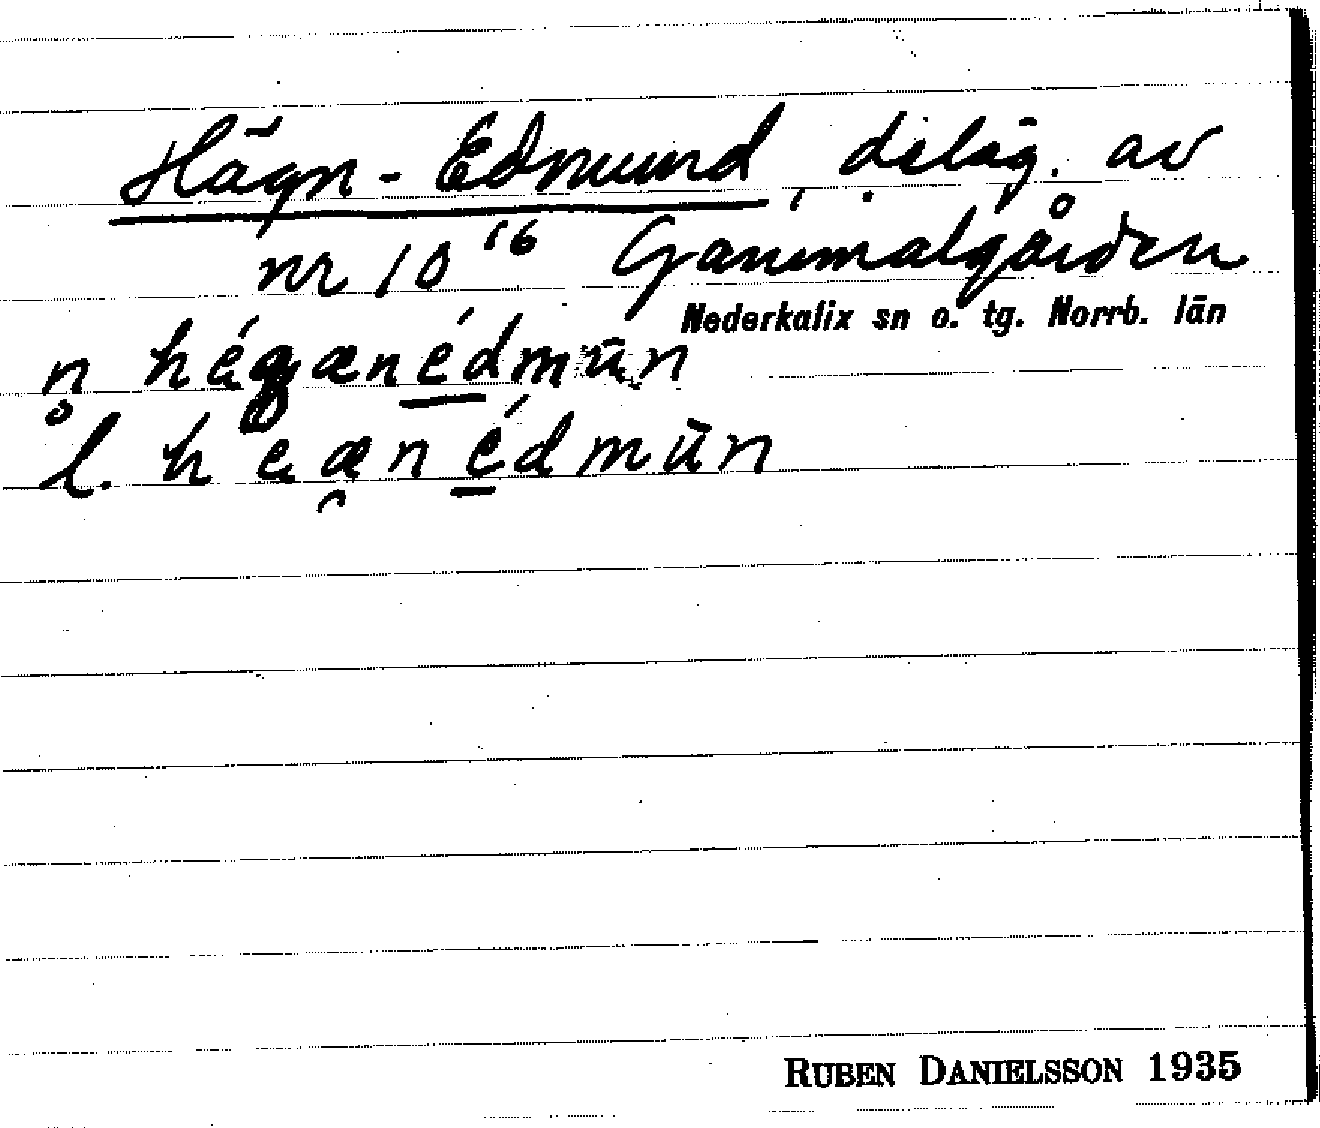 Hägn-Edmund, deläg. av
nr 10¹⁶ Gammalgården
Nederkalix sn o. tg. Norrb. län
n hégænédmūn
l. h e æ n édmūn
RUBEN DANIELSSON 1935